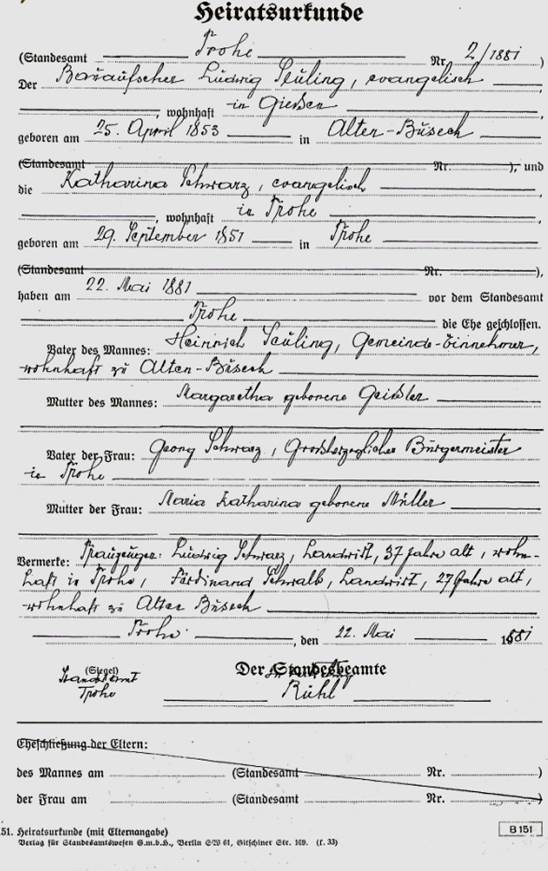 Heiratsurkunde
(Standesamt Trohe Nr. 2/1881)
Der Bauaufseher Ludwig Seuling, evangelisch,
, wohnhaft in Gießen
geboren am 25. April 1853 in Alten-Buseck
(Standesamt Nr. ), und
die Katharina Schwarz, evangelisch
, wohnhaft in Trohe,
geboren am 29. September 1857 in Trohe
(Standesamt Nr. ),
haben am 22. Mai 1881 vor dem Standesamt
Trohe die Ehe geschlossen.
Vater des Mannes: Heinrich Seuling, Gemeinde-Einnehmer,
wohnhaft zu Alten-Buseck
Mutter des Mannes: Margaretha geborene Geißler
Vater der Frau: Georg Schwarz, Großherzoglicher Bürgermeister
in Trohe
Mutter der Frau: Maria Katharina geborene Müller
Vermerke: Trauzeugen: Ludwig Schwarz, Landwirt, 37 Jahre alt, wohn-
haft in Trohe, Ferdinand Schwalb, Landwirt, 27 Jahre alt,
wohnhaft zu Alten Buseck
Trohe, den 22. Mai 1881
(Siegel) Der Standesbeamte
Standesamt
Trohe Rühl
Eheschließung der Eltern:
des Mannes am (Standesamt Nr. )
der Frau am (Standesamt Nr. )
51. Heiratsurkunde (mit Elternangabe) B 151
Verlag für Standesamtswesen G.m.b.H., Berlin SW 61, Gitschiner Str. 109. (f. 33)